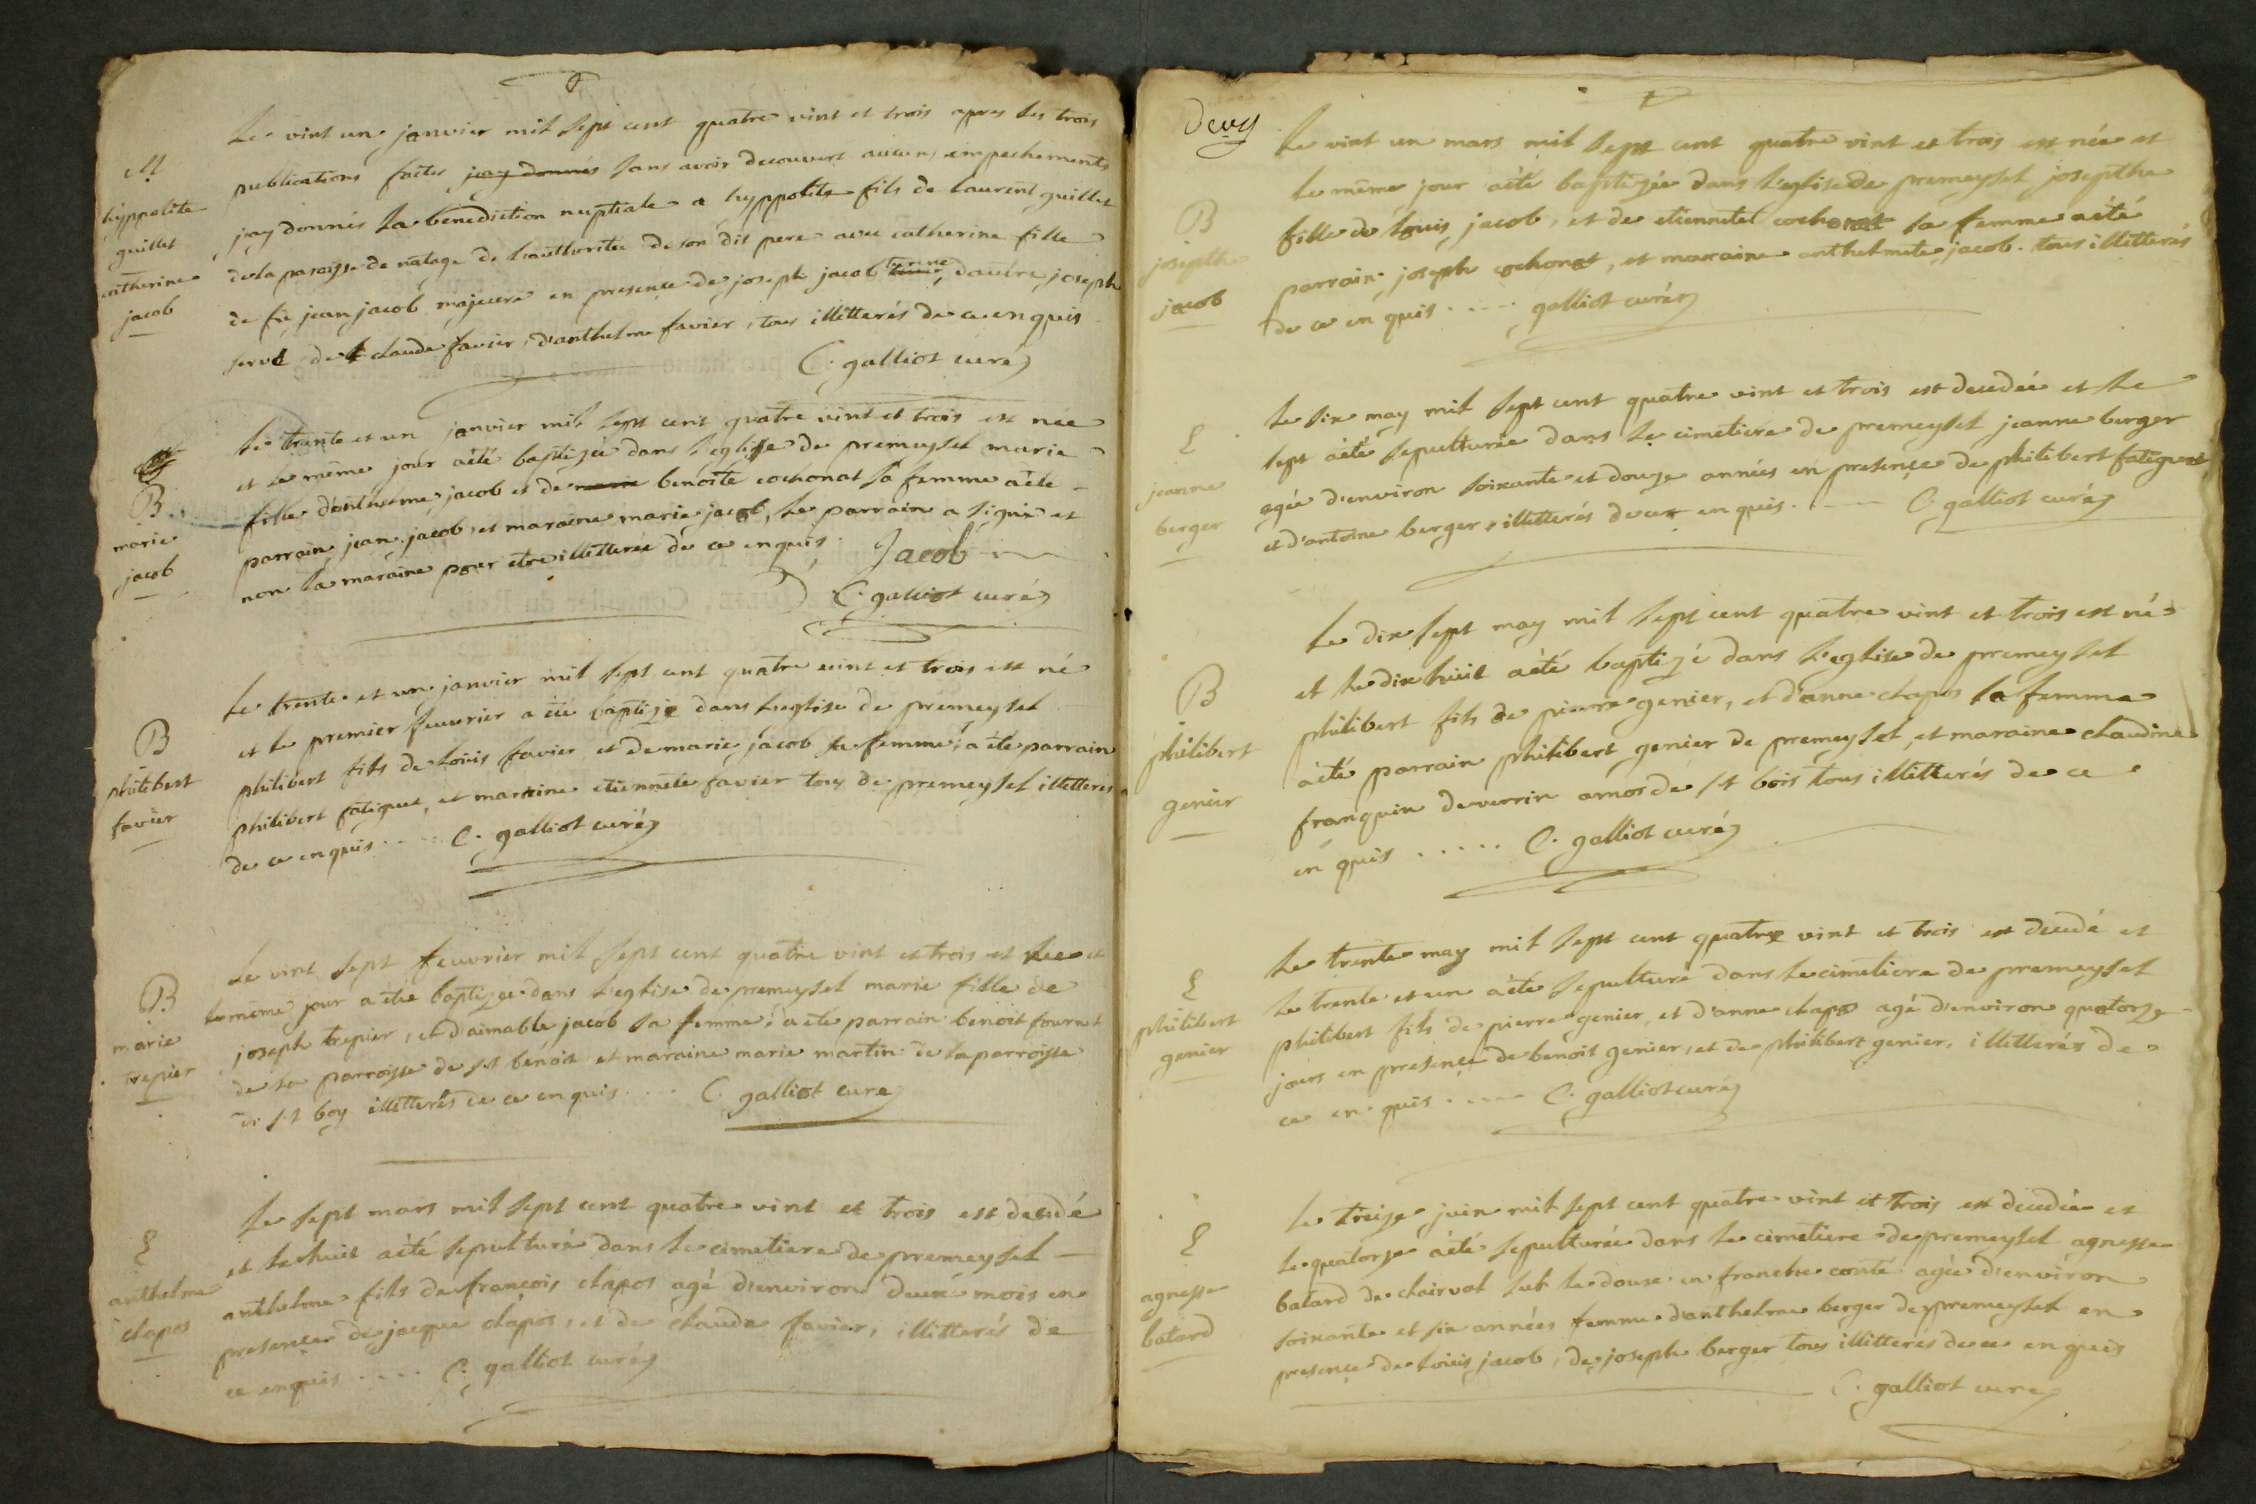 M
hyppolite
guillet
catherine
jacob
Le vint un janvier mil sept cent quatre vint et trois apres les trois
publications faites jay donnés sans avoir decouvert aucun empechements
jay donnés la benediction nuptiale a hyppolite fils de laurent guillet
de la paroisse de natage de l'authoritée de son dit pere avec catherine fille
de fû jean jacob majeure en presence de joseph jacob d'andré joseph
servé de claude favier, d'anthelme favier, tous illitterés de ce enquis
C. galliot curé
B
marie
jacob
Le trente et un janvier mil sept cent quatre vint et trois est née
et le même jour aété baptizée dans l'eglise de premeysel marie
fille d'anthelme jacob et de benoite cochonat sa femme aété
parrain jean jacob et maraine marie jacob, le parrain a signé et
non la maraine pour etre illitterée de ce enquis. Jacob
C. galliot curé
B
philibert
favier
Le trente et un janvier mil sept cent quatre vint et trois est né
et le premier feuvrier a été baptizé dans l'eglise de premeysel
philibert fils de louis favier et de marie jacob sa femme; a été parrain
philibert fatiguet, et marraine etiennete favier tous de premeysel illitterés
de ce enquis .... C. galliot curé
B
marie
trepier
Le vint sept feuvrier mil sept cent quatre vint et trois est née et
le même jour a été baptizée dans l'eglise de premeysel marie fille de
joseph trepier, et d'aimable jacob sa femme; a été parrain benoit fournet
de la parroisse de st benoit et maraine marie martin de la parroisse
de st boy illitterés de ce enquis .... C. galliot curé
§
anthelme
chapos
Le sept mars mil sept cent quatre vint et trois est decedé
et le huit aété sepulturé dans le cimetiere de premeysel
anthelme fils de françois chapos agé d'environ deux mois en
presence de jacque chapos, et de claude favier, illitterés de
ce enquis .... C. galliot curé
deux
B
josepthe
jacob
Le vint un mars mil sept cent quatre vint et trois est née et
le même jour aété baptizée dans l'eglise de premeysel josepthe
fille de louis jacob, et de etiennete cochonat sa femme aété
parrain joseph cochonat, et maraine anthelmete jacob. tous illitterés
de ce en quis .... galliot curé
§
jeanne
berger
Le six may mil sept cent quatre vint et trois est decedée et le
sept aété sepulturée dans le cimetiere de premeysel jeanne berger
agée d'environ soixante et douze années en presence de philibert fatiguet
et d'antoine berger illitterés de ce enquis. .... C. galliot curé
B
philibert
genier
Le dix sept may mil sept cent quatre vint et trois est né
et le dix huit aété baptizé dans l'eglise de premeysel
philibert fils de pierre genier, et d'anne chapos sa femme
aété parrain philibert genier de premeysel, et maraine claudine
franquin de st bois tous illitterés de ce
en quis ..... C. galliot curé
§
philibert
genier
Le trente may mil sept cent quatre vint et trois est decedé et
Le trente et un aété sepulturé dans le cimetiere de premeysel
philibert fils de pierre genier, et d'anne chapos agé d'environ quatorze
jours en presence de benoit genier, et de philibert genier, illitterés de
ce en quis .... C. galliot curé
§
agnesse
batard
Le treize juin mil sept cent quatre vint et trois est decedée et
le quatorze aété sepulturée dans le cimetiere de premeysel agnesse
batard de clairval sub le doux en franche conté agée d'environ
soixante et six années femme d'anthelme berger de premeysel en
presence de louis jacob, de joseph berger tous illitteres de ce enquis
C. galliot curé